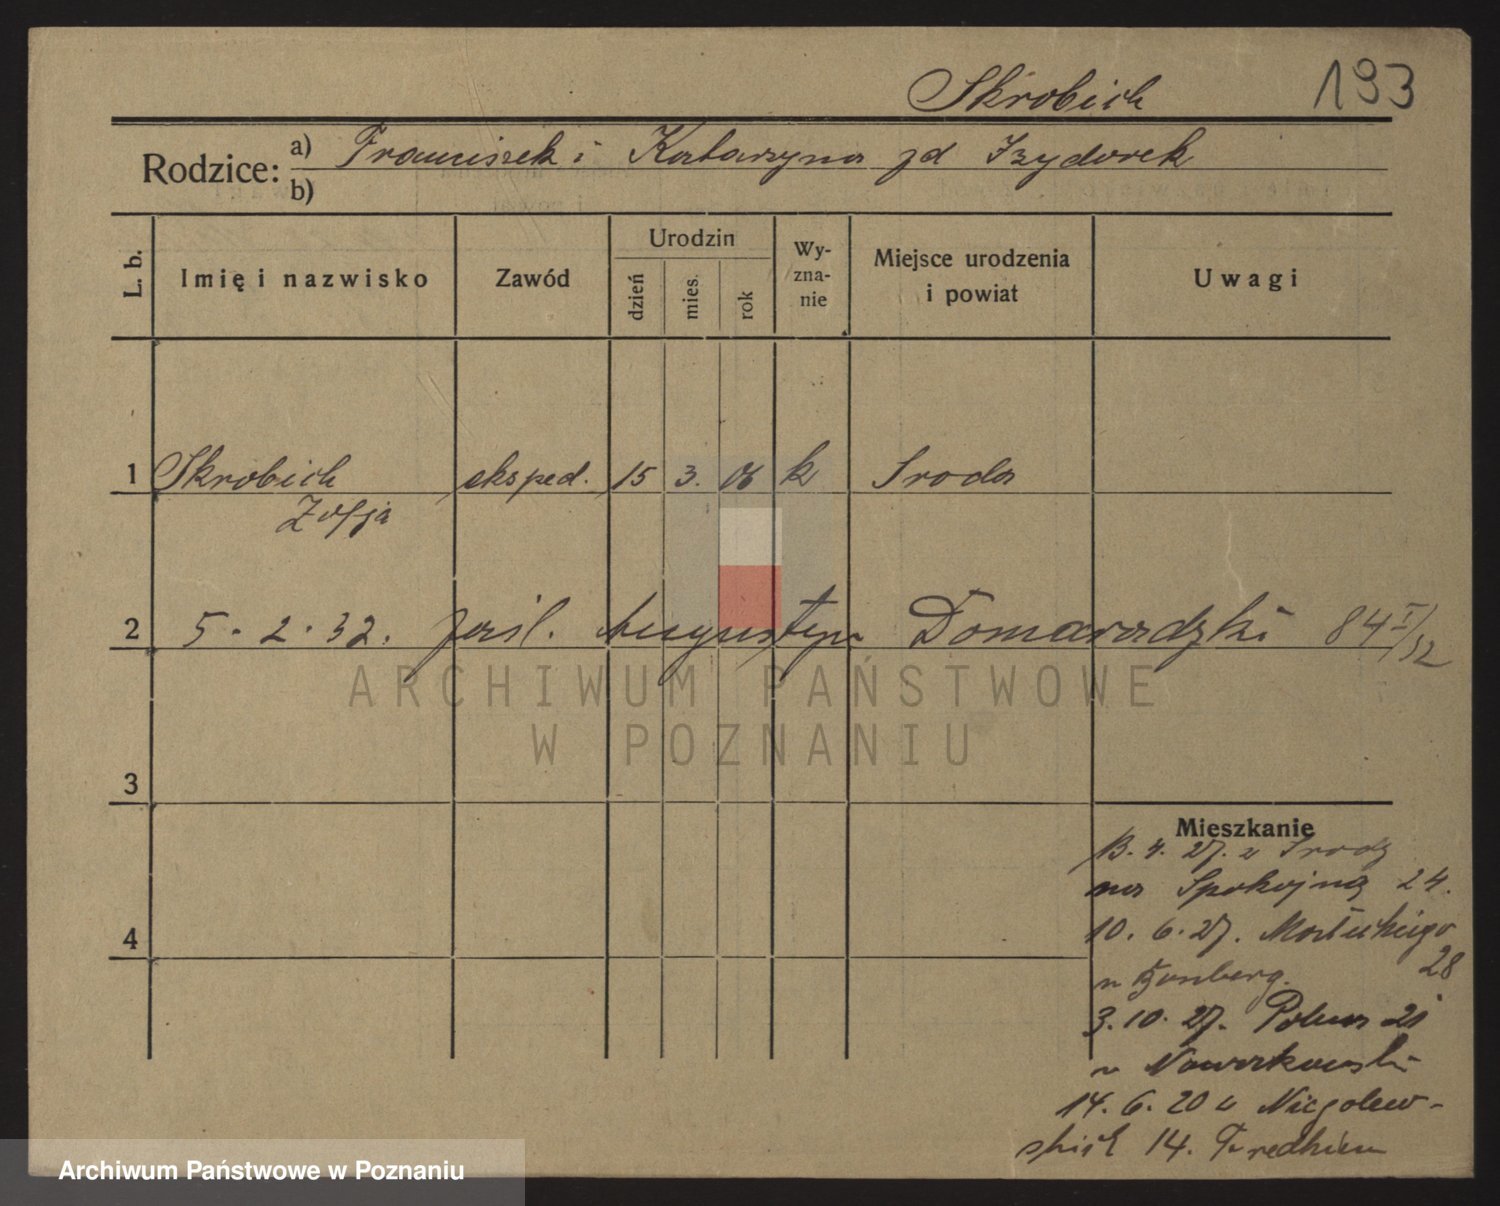 Skrobich 193
Rodzice: a) Franciszek i Katarzyna zd Izydorek
b)
L. b.
Imię i nazwisko
Zawód
Urodzin
dzień
mies.
rok
Wy-
zna-
nie
Miejsce urodzenia
i powiat
Uwagi
1 Skrobich eksped. 15 3. 06 k Sroda
Zofja
2 5. 2. 32. zaśl. Augustyn Domaradzki 84 I/32
ARCHIWUM PAŃSTWOWE
W POZNANIU
3
Mieszkanie
13. 4. 27. z Srody
na Spokojną 24.
4
10. 6. 27.
28
3. 10. 27. Polna 21
u Nowakowski
14. 6. 20 u Niegolew-
skich 14.
Archiwum Państwowe w Poznaniu